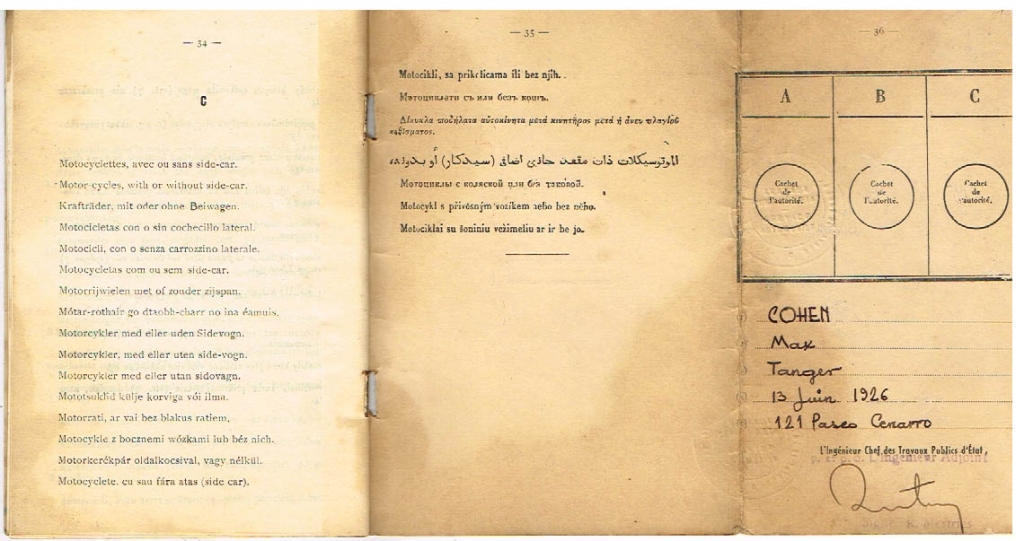 — 34 —
C
Motocyclettes, avec ou sans side-car.
Motor-cycles, with or without side-car.
Krafträder, mit oder ohne Beiwagen.
Motocicletas con o sin cochecillo lateral.
Motocicli, con o senza carrozzino laterale.
Motocycletas com ou sem side-car.
Motorrijwielen met of zonder zijspan.
Mótar-rothair go dtaobh-charr no ina éamuis.
Motorcykler med eller uden Sidevogn.
Motorcykler, med eller uten side-vogn.
Motorcykler med eller utan sidovagn.
Mototsuklid külje korviga või ilma.
Motorrati, ar vai bez blakus ratiem,
Motocykle z bocznemi wózkami lub béz nich.
Motorkerékpár oldalkocsival, vagy nélkül.
Motocyclete, cu sau fára atas (side car).
— 35 —
Motocikli, sa prikolicama ili bez njih.
Мотоциклети съ или безъ кошъ.
Δίκυκλα ποδήλατα αὐτοκίνητα μετά κινητῆρος μετά ἤ ἄνευ πλαγίου
καθίσματος.
الموترسيكلات ذات مقعد جانبي اضافي (سيدكار) أو بدونه
Мотоциклы с коляской или без таковой.
Motocykl s přívěsným vozíkem nebo bez něho.
Motociklai su šoniniu vežimeliu ar ir be jo.
— 36 —
A B C
Cachet
de
l'autorité.
Cachet
de
l'autorité.
Cachet
de
l'autorité.
COHEN
Max
Tanger
13 Juin 1926
121 Paseo Cenarro
L'Ingénieur Chef des Travaux Publics d'État,
L'Ingénieur Adjoint